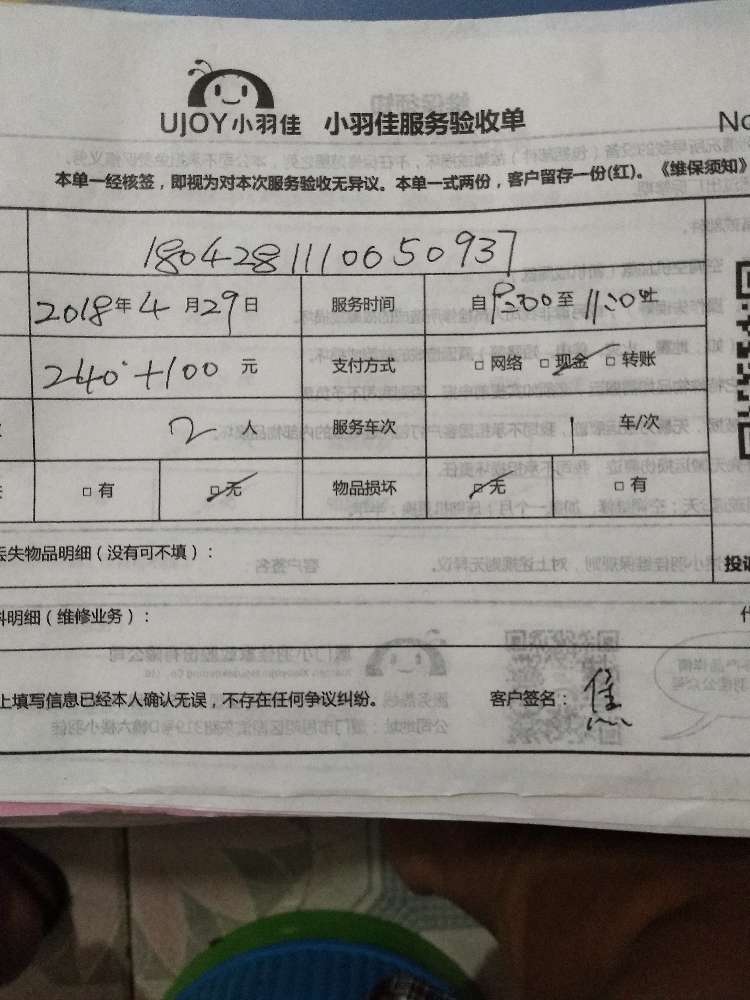 UJOY小羽佳 小羽佳服务验收单 No
本单一经核签，即视为对本次服务验收无异议。本单一式两份，客户留存一份(红)。《维保须知》
1804281110050937
2018年4月29日 服务时间 自9:00至11:0止
240+100元 支付方式 □网络 □现金 □转账
2人 服务车次 1车/次
□有 □无 物品损坏 □无 □有
失物品明细（没有可不填）： 投诉
料明细（维修业务）：
上填写信息已经本人确认无误，不存在任何争议纠纷。 客户签名：